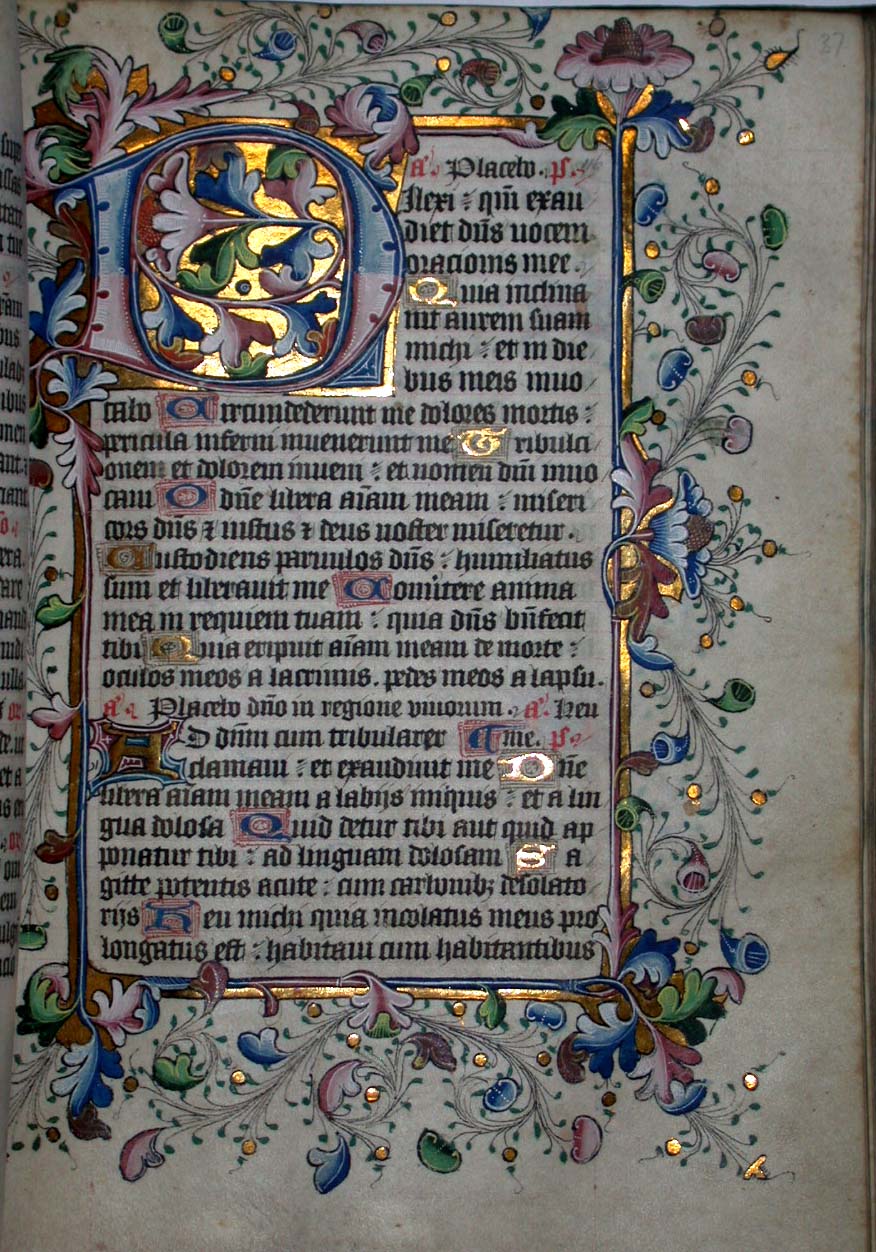 37
a. Placebo. ps.
Dilexi : qm̄ exau
diet dn̄s uocem
oracionis mee.
Quia inclina
uit aurem suam
michi : et in die
bus meis inuo
cabo Circumdederunt me dolores mortis :
pericula inferni inuenerunt me Tribulaci
onem et dolorem inueni : et nomen dn̄i inuo
caui O dn̄e libera aīam meam : miseri
cors dn̄s ⁊ iustus ⁊ deus noster miseretur.
Custodiens paruulos dn̄s : humiliatus
sum et liberauit me Conuertere anima
mea in requiem tuam : quia dn̄s bn̄fecit
tibi Quia eripuit aīam meam de morte :
oculos meos a lacrimis. pedes meos a lapsu.
a. Placebo dn̄o in regione viuorum. a. Heu
AD dn̄m cum tribularer me. ps.
clamaui : et exaudiuit me Dn̄e
libera aīam meam a labijs iniquis : et a lin
gua dolosa Quid detur tibi aut quid ap
ponatur tibi : ad linguam dolosam Sa
gitte potentis acute : cum carbonibꝫ desolato
rijs Heu michi quia incolatus meus pro
longatus est : habitaui cum habitantibus